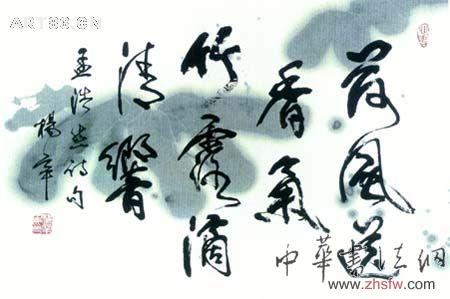 ART86.CN
荷風送
香氣
竹露滴
清響
孟浩然詩句
楊辛
中華書法網
www.zhsfw.com